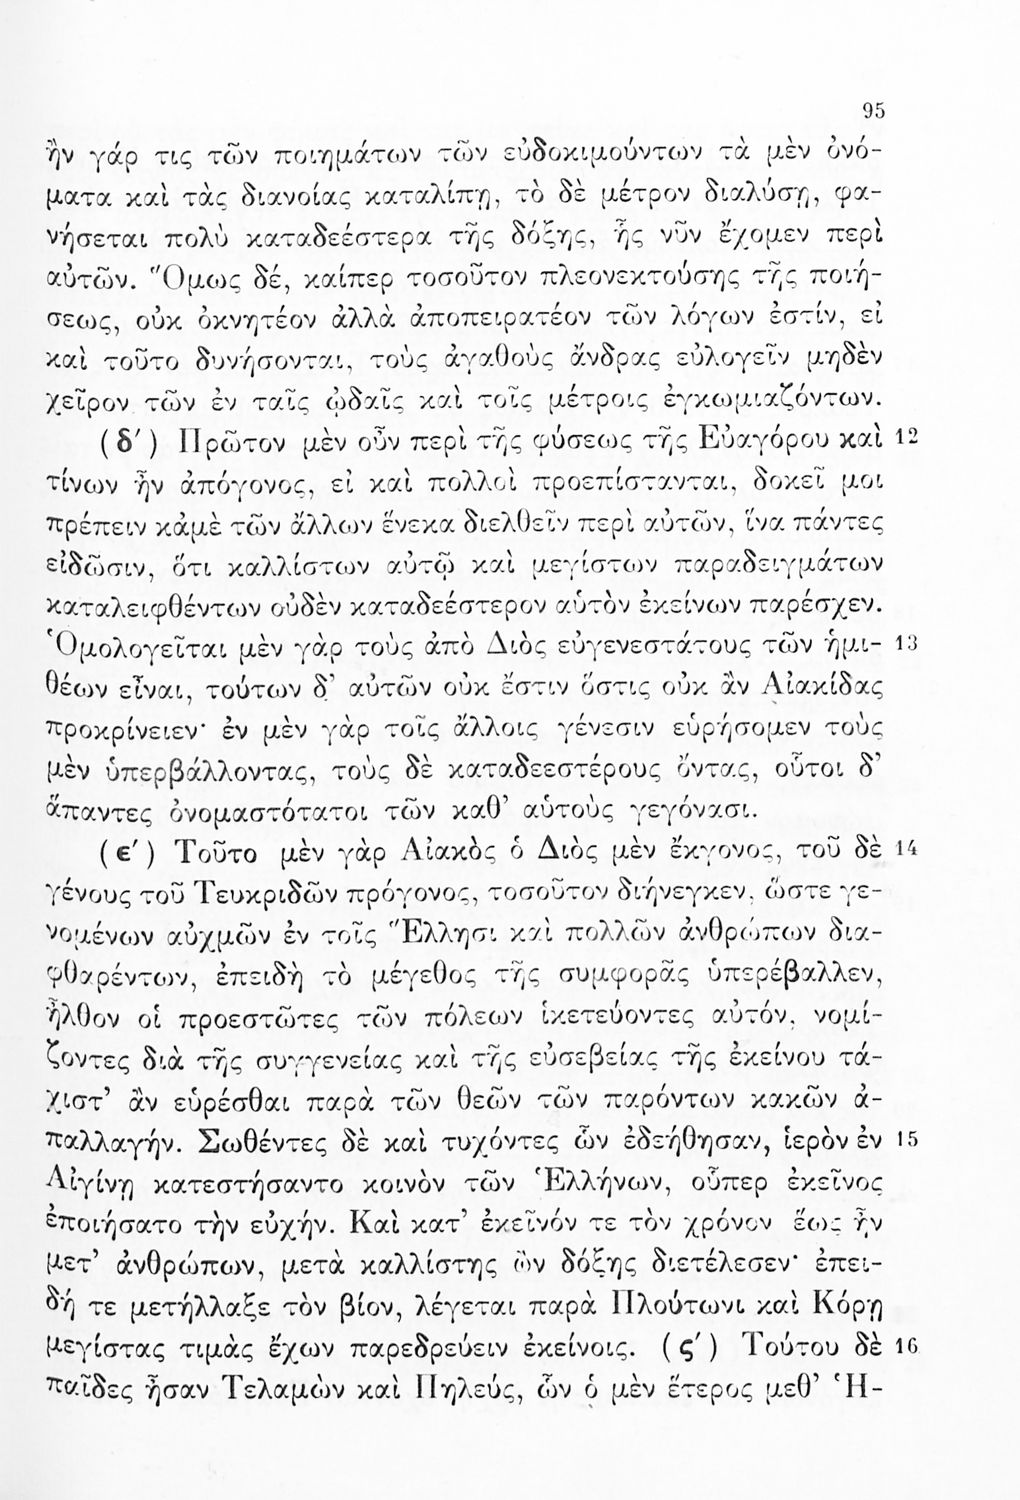 95
ἢν γάρ τις τῶν ποιημάτων τῶν εὐδοκιμούντων τὰ μὲν ὀνό-
ματα καὶ τὰς διανοίας καταλίπῃ, τὸ δὲ μέτρον διαλύσῃ, φα-
νήσεται πολὺ καταδεέστερα τῆς δόξης, ἧς νῦν ἔχομεν περὶ
αὐτῶν. Ὅμως δέ, καίπερ τοσοῦτον πλεονεκτούσης τῆς ποιή-
σεως, οὐκ ὀκνητέον ἀλλὰ ἀποπειρατέον τῶν λόγων ἐστίν, εἰ
καὶ τοῦτο δυνήσονται, τοὺς ἀγαθοὺς ἄνδρας εὐλογεῖν μηδὲν
χεῖρον τῶν ἐν ταῖς ᾠδαῖς καὶ τοῖς μέτροις ἐγκωμιαζόντων.
(δ΄) Πρῶτον μὲν οὖν περὶ τῆς φύσεως τῆς Εὐαγόρου καὶ 12
τίνων ἦν ἀπόγονος, εἰ καὶ πολλοὶ προεπίστανται, δοκεῖ μοι
πρέπειν κἀμὲ τῶν ἄλλων ἕνεκα διελθεῖν περὶ αὐτῶν, ἵνα πάντες
εἰδῶσιν, ὅτι καλλίστων αὐτῷ καὶ μεγίστων παραδειγμάτων
καταλειφθέντων οὐδὲν καταδεέστερον αὑτὸν ἐκείνων παρέσχεν.
Ὁμολογεῖται μὲν γὰρ τοὺς ἀπὸ Διὸς εὐγενεστάτους τῶν ἡμι- 13
θέων εἶναι, τούτων δ' αὐτῶν οὐκ ἔστιν ὅστις οὐκ ἂν Αἰακίδας
προκρίνειεν· ἐν μὲν γὰρ τοῖς ἄλλοις γένεσιν εὑρήσομεν τοὺς
μὲν ὑπερβάλλοντας, τοὺς δὲ καταδεεστέρους ὄντας, οὗτοι δ'
ἅπαντες ὀνομαστότατοι τῶν καθ' αὑτοὺς γεγόνασι.
(ε΄) Τοῦτο μὲν γὰρ Αἰακὸς ὁ Διὸς μὲν ἔκγονος, τοῦ δὲ 14
γένους τοῦ Τευκριδῶν πρόγονος, τοσοῦτον διήνεγκεν, ὥστε γε-
νομένων αὐχμῶν ἐν τοῖς Ἕλλησι καὶ πολλῶν ἀνθρώπων δια-
φθαρέντων, ἐπειδὴ τὸ μέγεθος τῆς συμφορᾶς ὑπερέβαλλεν,
ἦλθον οἱ προεστῶτες τῶν πόλεων ἱκετεύοντες αὐτόν, νομί-
ζοντες διὰ τῆς συγγενείας καὶ τῆς εὐσεβείας τῆς ἐκείνου τά-
χιστ' ἂν εὑρέσθαι παρὰ τῶν θεῶν τῶν παρόντων κακῶν ἀ-
παλλαγήν. Σωθέντες δὲ καὶ τυχόντες ὧν ἐδεήθησαν, ἱερὸν ἐν 15
Αἰγίνῃ κατεστήσαντο κοινὸν τῶν Ἑλλήνων, οὗπερ ἐκεῖνος
ἐποιήσατο τὴν εὐχήν. Καὶ κατ' ἐκεῖνόν τε τὸν χρόνον ἕως ἦν
μετ' ἀνθρώπων, μετὰ καλλίστης ὢν δόξης διετέλεσεν· ἐπει-
δή τε μετήλλαξε τὸν βίον, λέγεται παρὰ Πλούτωνι καὶ Κόρῃ
μεγίστας τιμὰς ἔχων παρεδρεύειν ἐκείνοις. (ς΄) Τούτου δὲ 16
παῖδες ἦσαν Τελαμὼν καὶ Πηλεύς, ὧν ὁ μὲν ἕτερος μεθ' Ἡ-